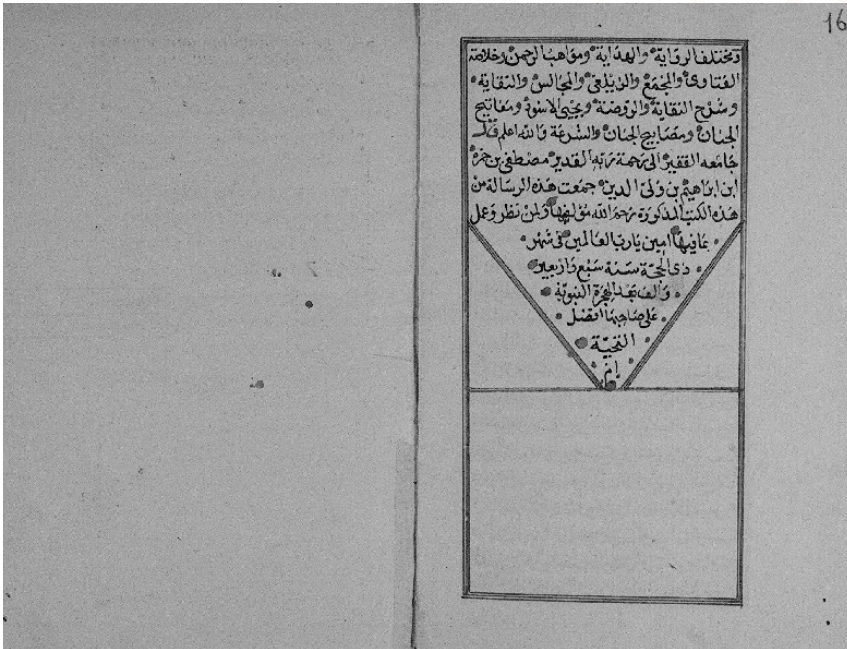 16
ومختلف الرواية والهداية ومواهب الرحمن وخلاصة
الفتاوى والمجمع والزيلعى والمجالس والنقاية
وشرح النقاية والروضة ويحيى الاسود ومفاتيح
الجنان ومصابيح الجنان والشرعة والله اعلم قال
جامعه الفقير الى رحمة ربه القدير مصطفى بن حمزة
ابن ابراهيم بن ولى الدين جمعت هذه الرسالة من
هذه الكتب المذكورة رحم الله مؤلفيها ولمن نظر وعمل
بما فيها امين يارب العالمين فى شهر
ذى الحجة سنة سبع واربعين
والف بعد الهجرة النبوية
على صاحبها افضل
التحية